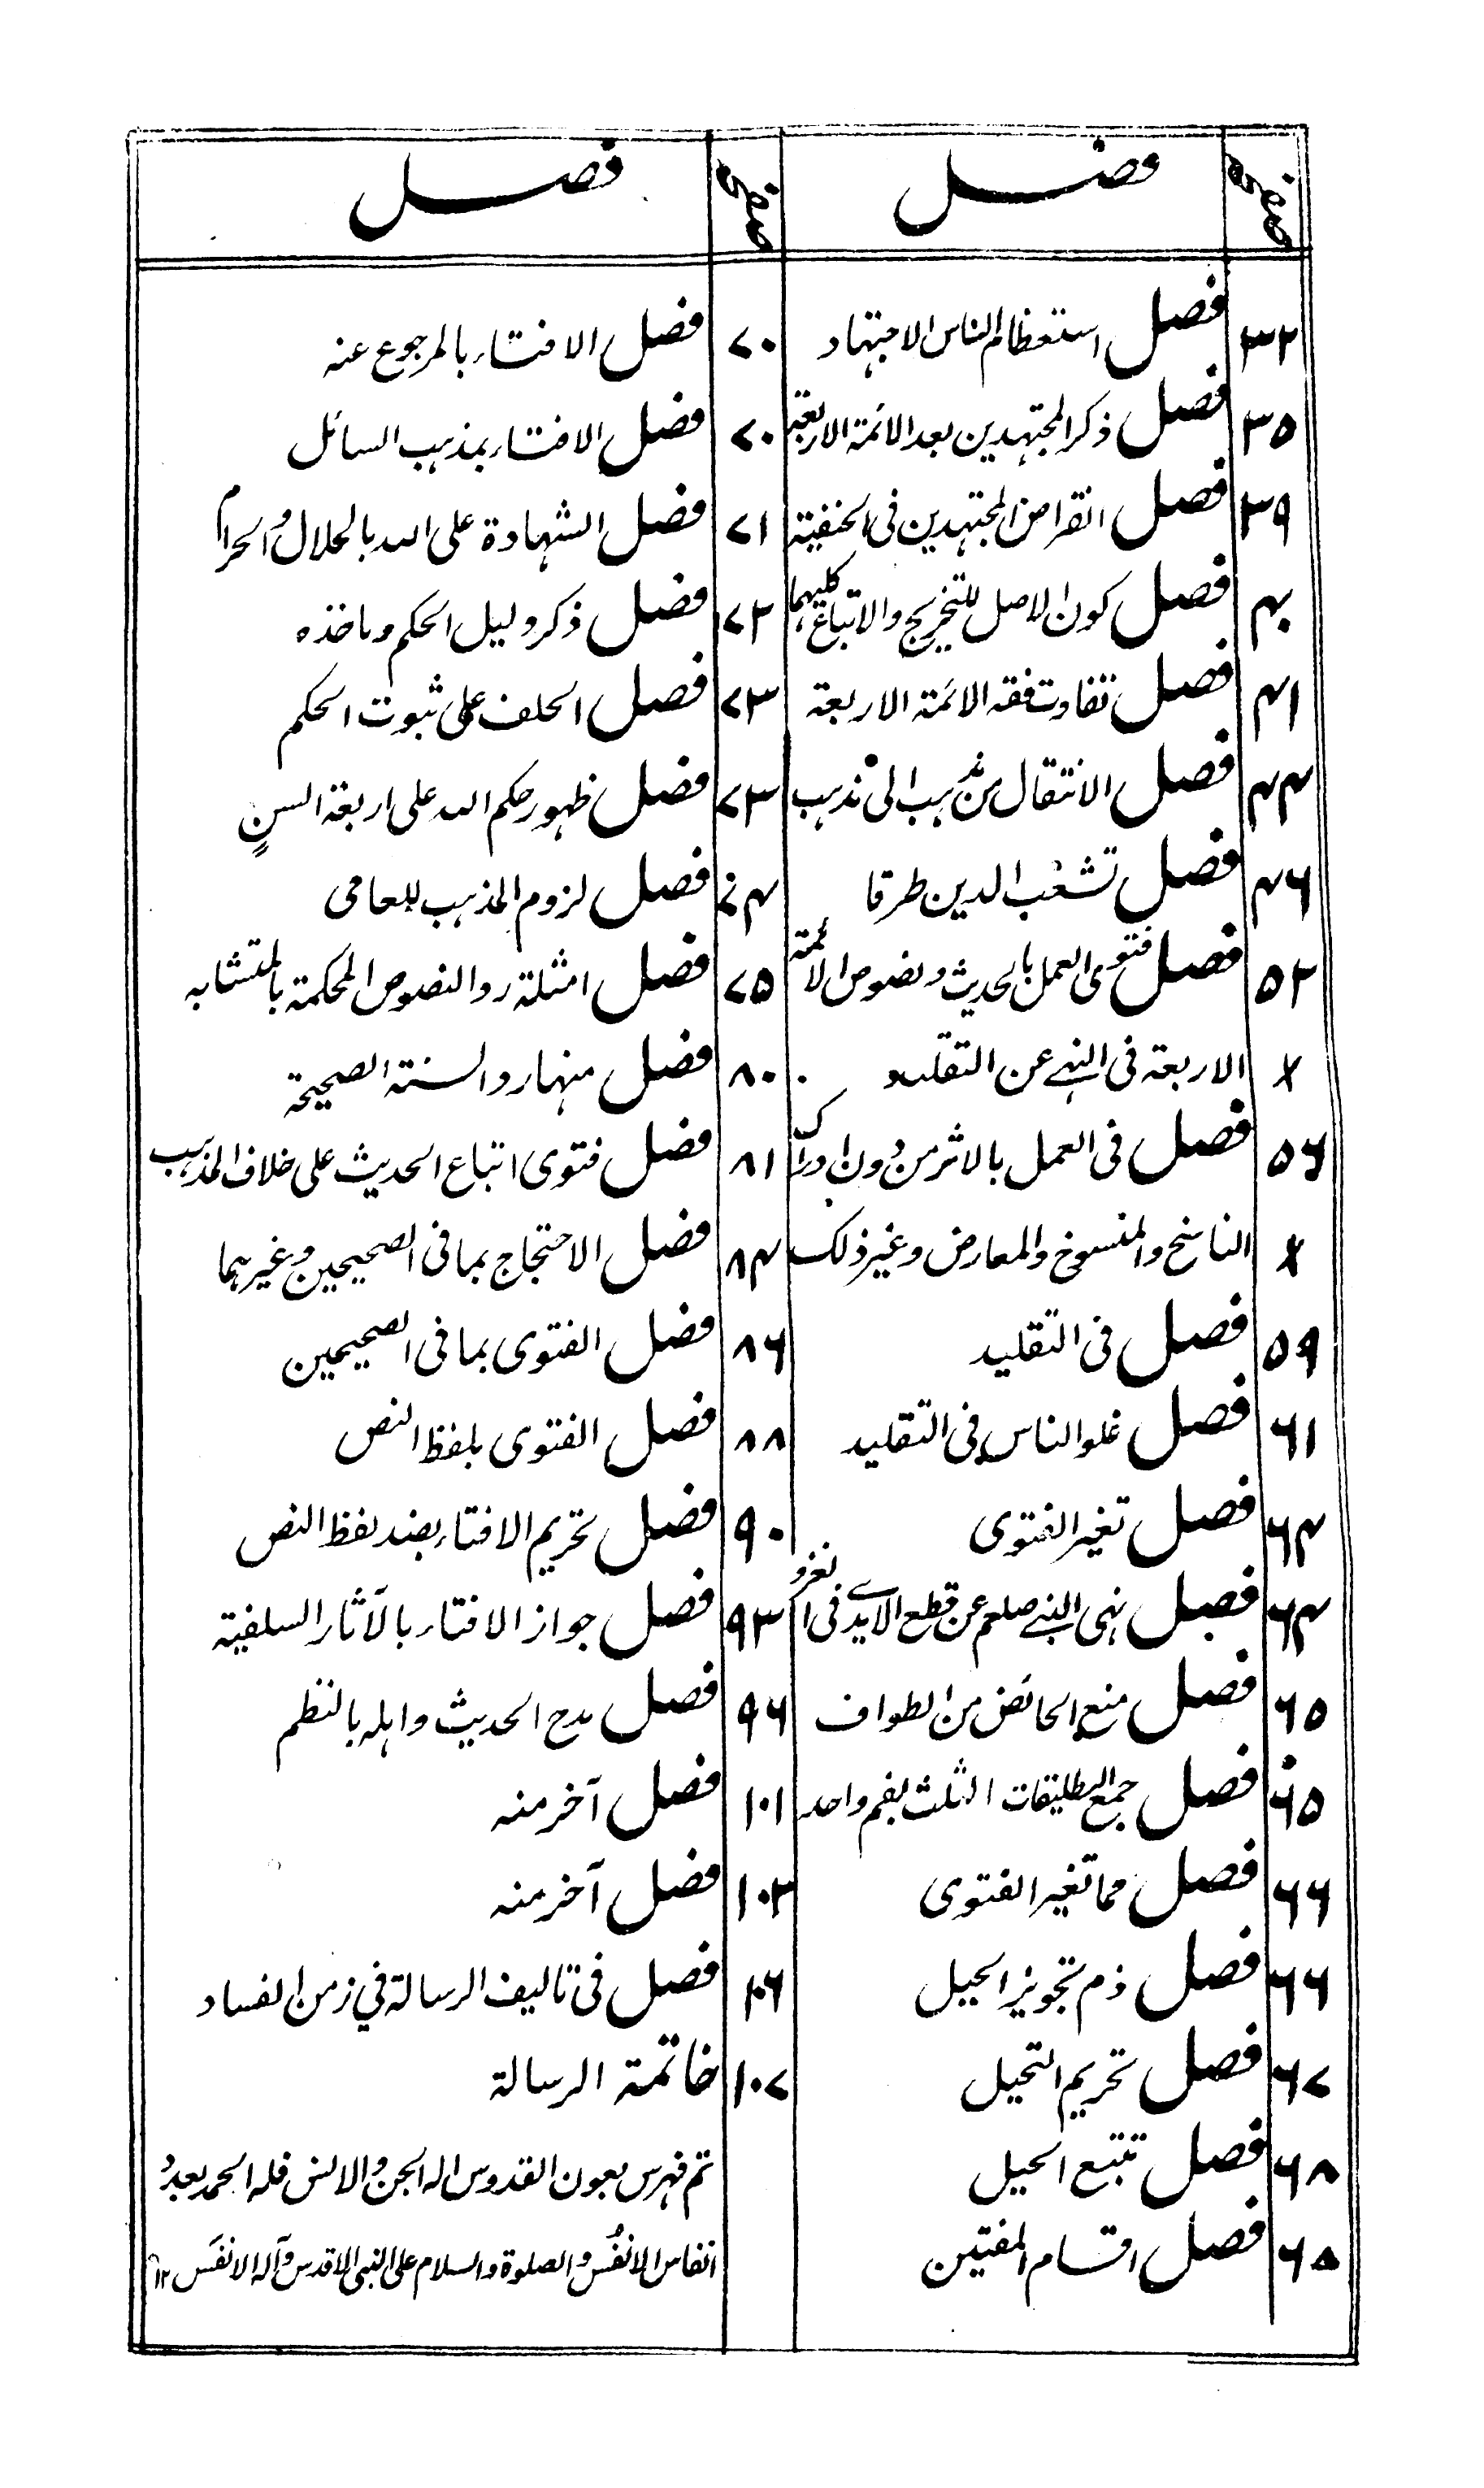 صفحہ فصل
۳۲ فصل استعظام الناس الاجتہاد
۳۵ فصل ذکر المجتہدین بعد الائمۃ الاربعۃ
۳۹ فصل انقراض المجتہدین فی الحنفیۃ
۴۰ فصل کون الاصل للتخریج والاتباع کلیہما
۴۱ فصل تفاوت فقہ الائمۃ الاربعۃ
۴۴ فصل الانتقال من مذہب الی مذہب
۴۶ فصل تشعب الدین طرقا
۵۲ فصل فتوی العمل بالحدیث ونصوص الائمۃ
× الاربعۃ فی النہی عن التقلید
۵۶ فصل فی العمل بالاثر من دون ادراک
× الناسخ والمنسوخ والمعارض وغیر ذلک
۵۹ فصل فی التقلید
۶۱ فصل غلو الناس فی التقلید
۶۴ فصل تغیر الفتوی
۶۴ فصل نہی النبی صلعم عن قطع الایدی فی الغزو
۶۵ فصل منع الحائض من الطواف
۶۵ فصل جمع التطلیقات الثلث بفم واحد
۶۶ فصل مما تغیر الفتوی
۶۶ فصل ذم تجویز الحیل
۶۷ فصل تحریم التحیل
۶۸ فصل تتبع الحیل
۶۸ فصل اقسام المفتیین
صفحہ فصل
۷۰ فصل الافتاء بالمرجوع عنہ
۷۰ فصل الافتاء بمذہب السائل
۷۱ فصل الشہادۃ علی اللہ بالحلال والحرام
۷۲ فصل ذکر دلیل الحکم وماخذہ
۷۳ فصل الحلف علی ثبوت الحکم
۷۳ فصل ظہور حکم اللہ علی اربعۃ السنٍ
۷۴ فصل لزوم المذہب للعامی
۷۵ فصل امثلۃ رد النصوص المحکمۃ بالمتشابہ
۸۰ فصل منہا رد السنتہ الصحیحۃ
۸۱ فصل فتوی اتباع الحدیث علی خلاف المذہب
۸۴ فصل الاحتجاج بما فی الصحیحین وغیرہما
۸۶ فصل الفتوی بما فی الصحیحین
۸۸ فصل الفتوی بلفظ النص
۹۰ فصل تحریم الافتاء بضد لفظ النص
۹۳ فصل جواز الافتاء بالآثار السلفیۃ
۹۶ فصل مدح الحدیث واہلہ بالنظم
۱۰۱ فصل آخر منہ
۱۰۳ فصل آخر منہ
۱۰۶ فصل فی تالیف الرسالۃ فی زمن الفساد
۱۰۷ خاتمۃ الرسالۃ
تم فہرس بعون القدوس الہ الجن والانس فلہ الحمد بعدد
انفاس الانفُس والصلوۃ والسلام علی النبی الاقدس وآلہ الانفَس ۱۲